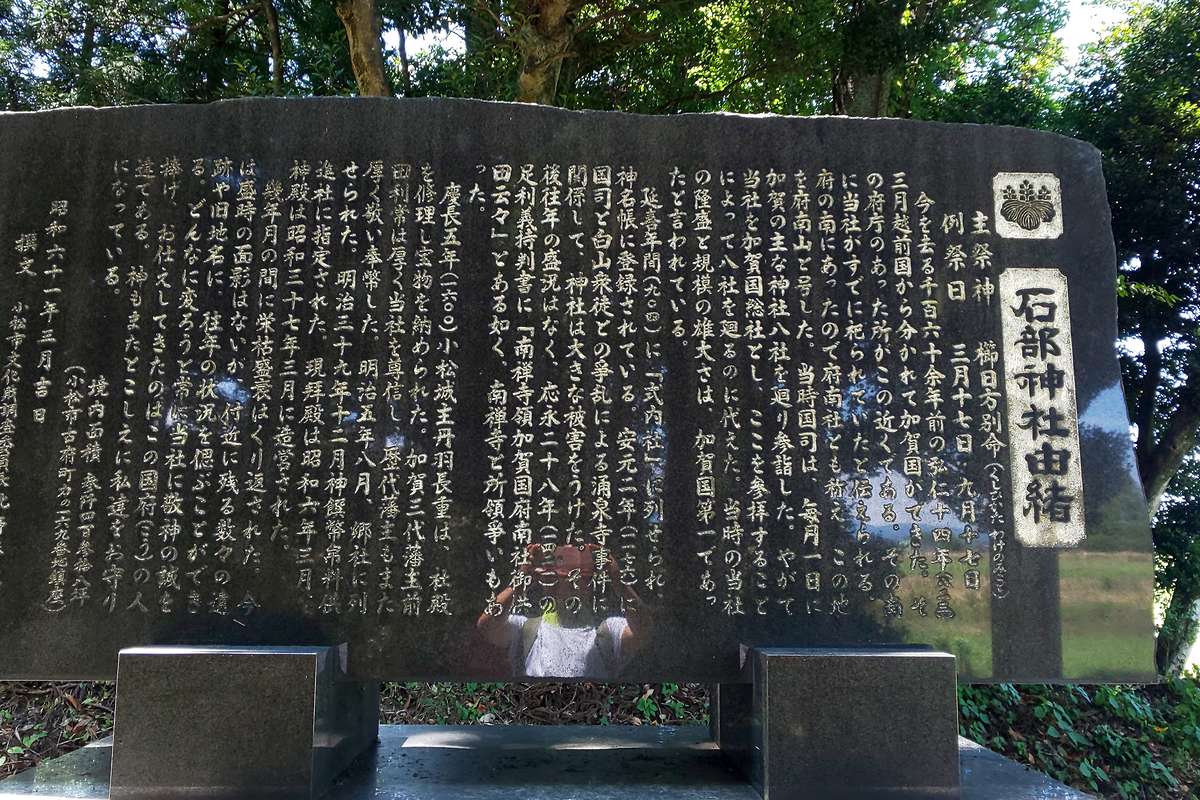 石部神社由緒
主祭神 櫛日方別命(くしひかた わけのみこと)
例祭日 三月十七日 九月十七日
今を去る千百六十余年前の弘仁十四年(八二三)
三月越前国から分かれて加賀国ができた。そ
の府庁のあった所がこの近くである。その南
に当社がすでに祀られていたと伝えられる。
府の南にあったので府南社とも称え、この地
を府南山と号した。当時国司は、毎月一日に
加賀の主な神社八社を廻り参詣した。やがて
当社を加賀国総社とし、ここを参拝すること
によって八社を廻るのに代えた。当時の当社
の隆盛と規模の雄大さは、加賀国第一であっ
たと言われている。
延喜年間(九〇四)に「式内社」に列せられ、
神名帳に登録されている。安元二年(一一七六)に
国司と白山衆徒との争乱による涌泉寺事件に
関係して、神社は大きな被害をうけた。その
後往年の盛況はなく、応永二十八年(一四二一)の
足利義持判書に「南禅寺領加賀国府南社御供
田云々」とある如く、南禅寺と所領争いもあ
った。
慶長五年(一六〇〇)小松城主丹羽長重は、社殿
を修理し宝物を納められた。加賀三代藩主前
田利常は厚く当社を尊信し、歴代藩主もまた
厚く敬い奉幣した。明治五年八月、郷社に列
せられた。明治三十九年十二月神饌幣帛料供
進社に指定された。現拝殿は昭和六年三月、
神殿は昭和三十七年三月に造営された。
幾年月の間に栄枯盛衰はくり返された。今
は盛時の面影はないが、付近に残る数々の遺
跡や旧地名に、往年の状況を偲ぶことができ
る。どんなに変ろうと常に当社に敬神の誠を
捧げ、お仕えしてきたのは、この国府(こう)の人
達である。神もまたとこしえに私達をお守り
になっている。
境内面積 参阡四百参拾八平
(小松市古府町カ一六九番地鎮座)
昭和六十一年三月吉日
撰文 小松市文化財調査委員